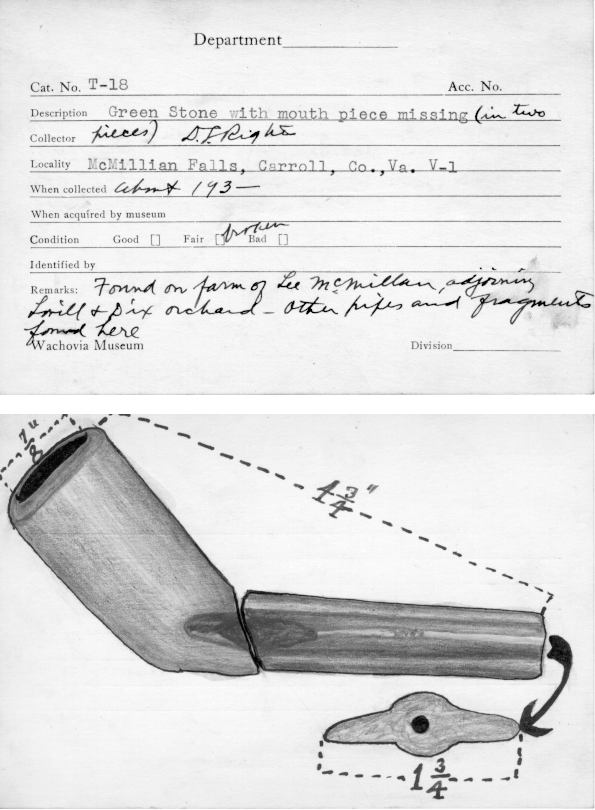 Department
Cat. No. T-18 Acc. No.
Description Green Stone with mouth piece missing (in two
Collector pieces) D.L.Rights
Locality McMillian Falls, Carroll, Co.,Va. V-1
When collected about 193—
When acquired by museum
broken
Condition Good [] Fair [] Bad []
Identified by
Remarks: Found on farm of Lee McMillan, adjoining
& Dix orchard - Other pipes and fragments
found here
Wachovia Museum Division
7/8"
4 3/4"
1 3/4